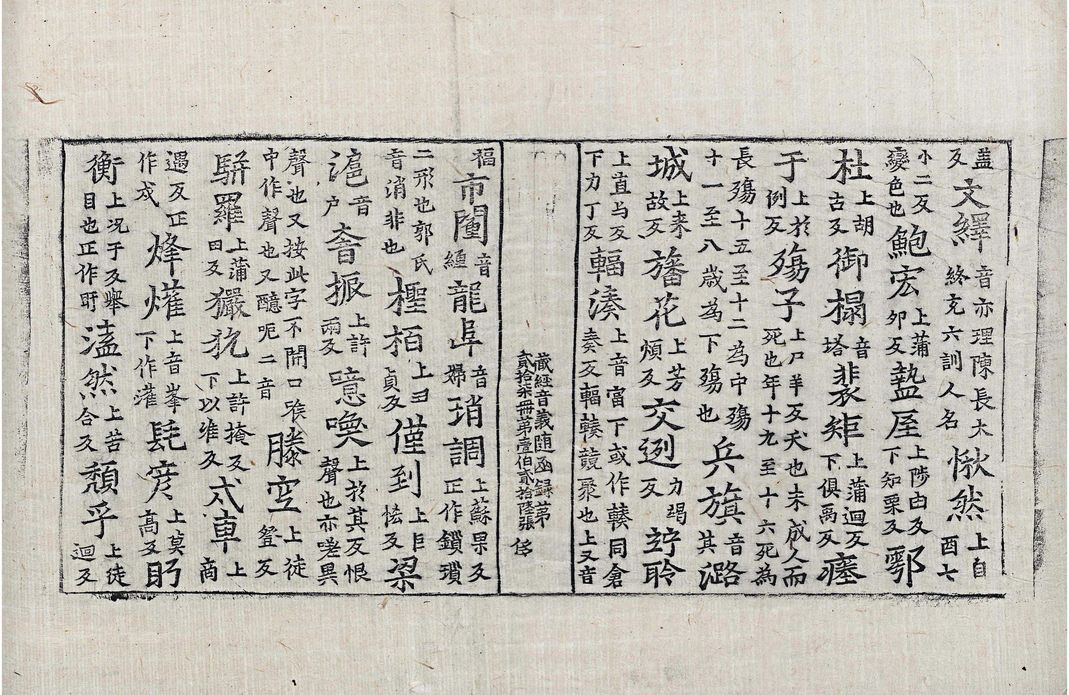 盖文繹音亦理陳長大愀然上自
反終充六訓人名酉七
小二反鮑宏上蒲盩厔上陟由反鄠
變色也夘反下知栗反
杜上胡御榻音裴矩上蒲迴反瘞
古反塔下俱禹反
于上於殤子上尸羊反夭也未成人而
例反死也年十九至十六死為
長殤十五至十二為中殤兵旗音潞
十一至八歲為下殤也其
城上来旛花上芳交迾力竭竚聆
故反煩反反
上直与反輻湊上音富下或作輳同倉
下力丁反奏反輻輳競聚也上又音
藏經音義隨函録第
貳拾柒冊第壹伯貳拾陸張 侈
福市闉音龍阜音瑣調上蘇果反
纏婦正作鎖瑣
二形也郭氏檉栢上丑僅到上巨梁
音消非也貞反怯反
滬音㫪振上許噫喚上於其反恨
户兩反聲也亦嗟異
聲也又按此字不開口喉滕空上徒
中作聲也又醷呃二音登反
騈羅上蒲玁狁上許掩反弌車上
田反下以准反商
遇反正烽爟上音峯髦彦上莫眄
作戍下作灌高反
衡上况于反舉溘然上苦頽乎上徒
目也正作盱合反迴反